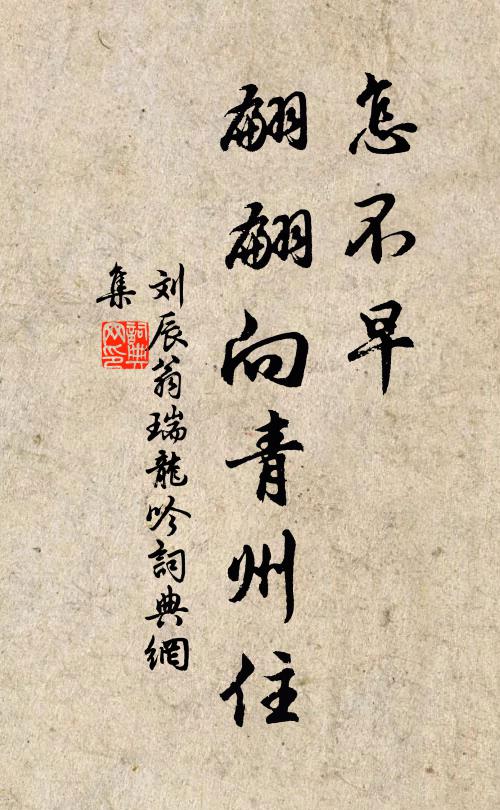 怎不早
翩翩向青州住
刘辰翁瑞龍吟詞典網
集
詞典
网印